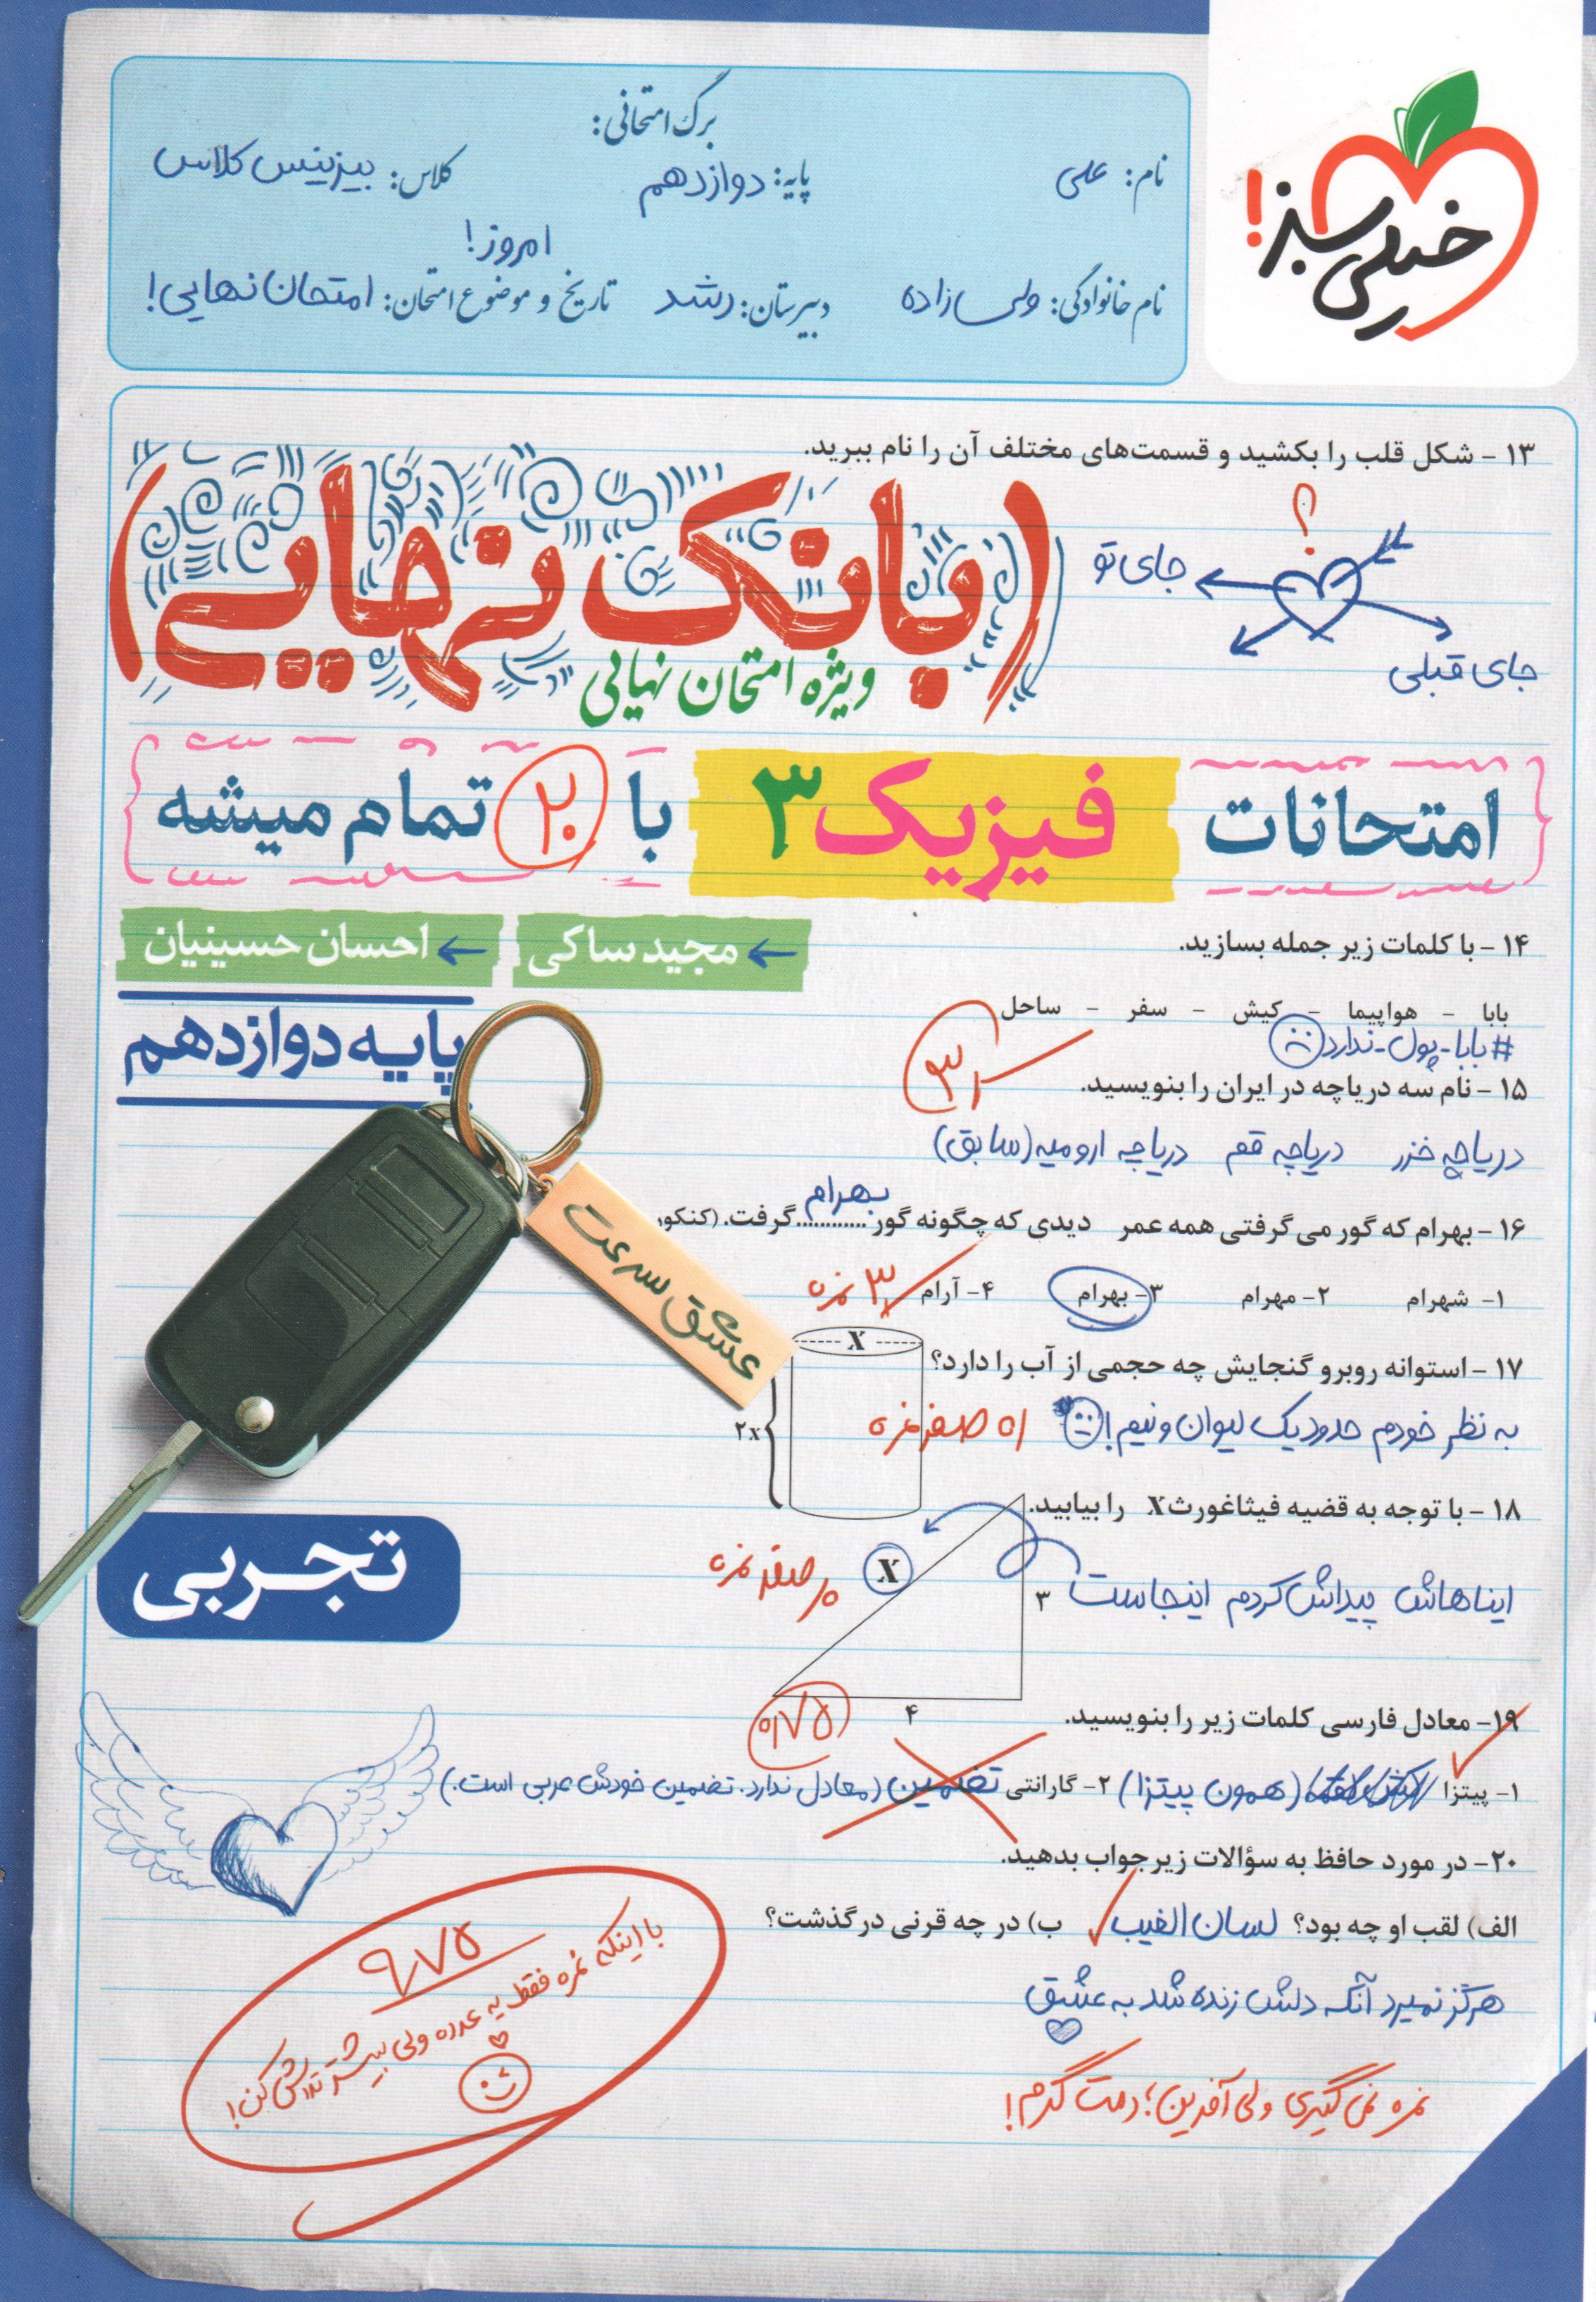 خیلی سبز!
برگ امتحانی:
نام: علی پایه: دوازدهم کلاس: بیزینس کلاس
امروز!
نام خانوادگی: ولی‌زاده دبیرستان: رشد تاریخ و موضوع امتحان: امتحان نهایی!
۱۳ - شکل قلب را بکشید و قسمت‌های مختلف آن را نام ببرید.
؟
جای تو
جای قبلی
(بانک نهایی)
ویژه امتحان نهایی
امتحانات فیزیک ۳ با ۲۰ تمام میشه
مجید ساکی ← احسان حسینیان ←
۱۴ - با کلمات زیر جمله بسازید.
بابا - هواپیما - کیش - سفر - ساحل
#بابا-پول-ندارد
پایه دوازدهم
۱۵ - نام سه دریاچه در ایران را بنویسید.
دریاچه خزر دریاچه قم دریاچه ارومیه (سابق)
۱۶ - بهرام که گور می‌گرفتی همه عمر دیدی که چگونه گور بهرام گرفت. (کنکور
۱- شهرام ۲- مهرام ۳- بهرام ۴- آرام ۳ نمره
عشق سرعت
X
۲x
۱۷ - استوانه روبرو گنجایش چه حجمی از آب را دارد؟
به نظر خودم حدود یک لیوان و نیم! صفر نمره
۱۸ - با توجه به قضیه فیثاغورث X را بیابید.
ایناهاش پیداش کردم اینجاست ۳ X صفر نمره
۴
تجربی
۱۹- معادل فارسی کلمات زیر را بنویسید. ۰/۷۵
۱- پیتزا (همون پیتزا) ۲- گارانتی تضمین (معادل ندارد. تضمین خودش عربی است.)
۲۰- در مورد حافظ به سؤالات زیر جواب بدهید.
الف) لقب او چه بود؟ لسان الغیب ب) در چه قرنی درگذشت؟
هرگز نمیرد آنکه دلش زنده شد به عشق
نمره نمی‌گیری ولی آفرین؛ دمت گرم!
۹/۷۵
با اینکه نمره فقط یه عدده ولی بیشتر تلاش کن!